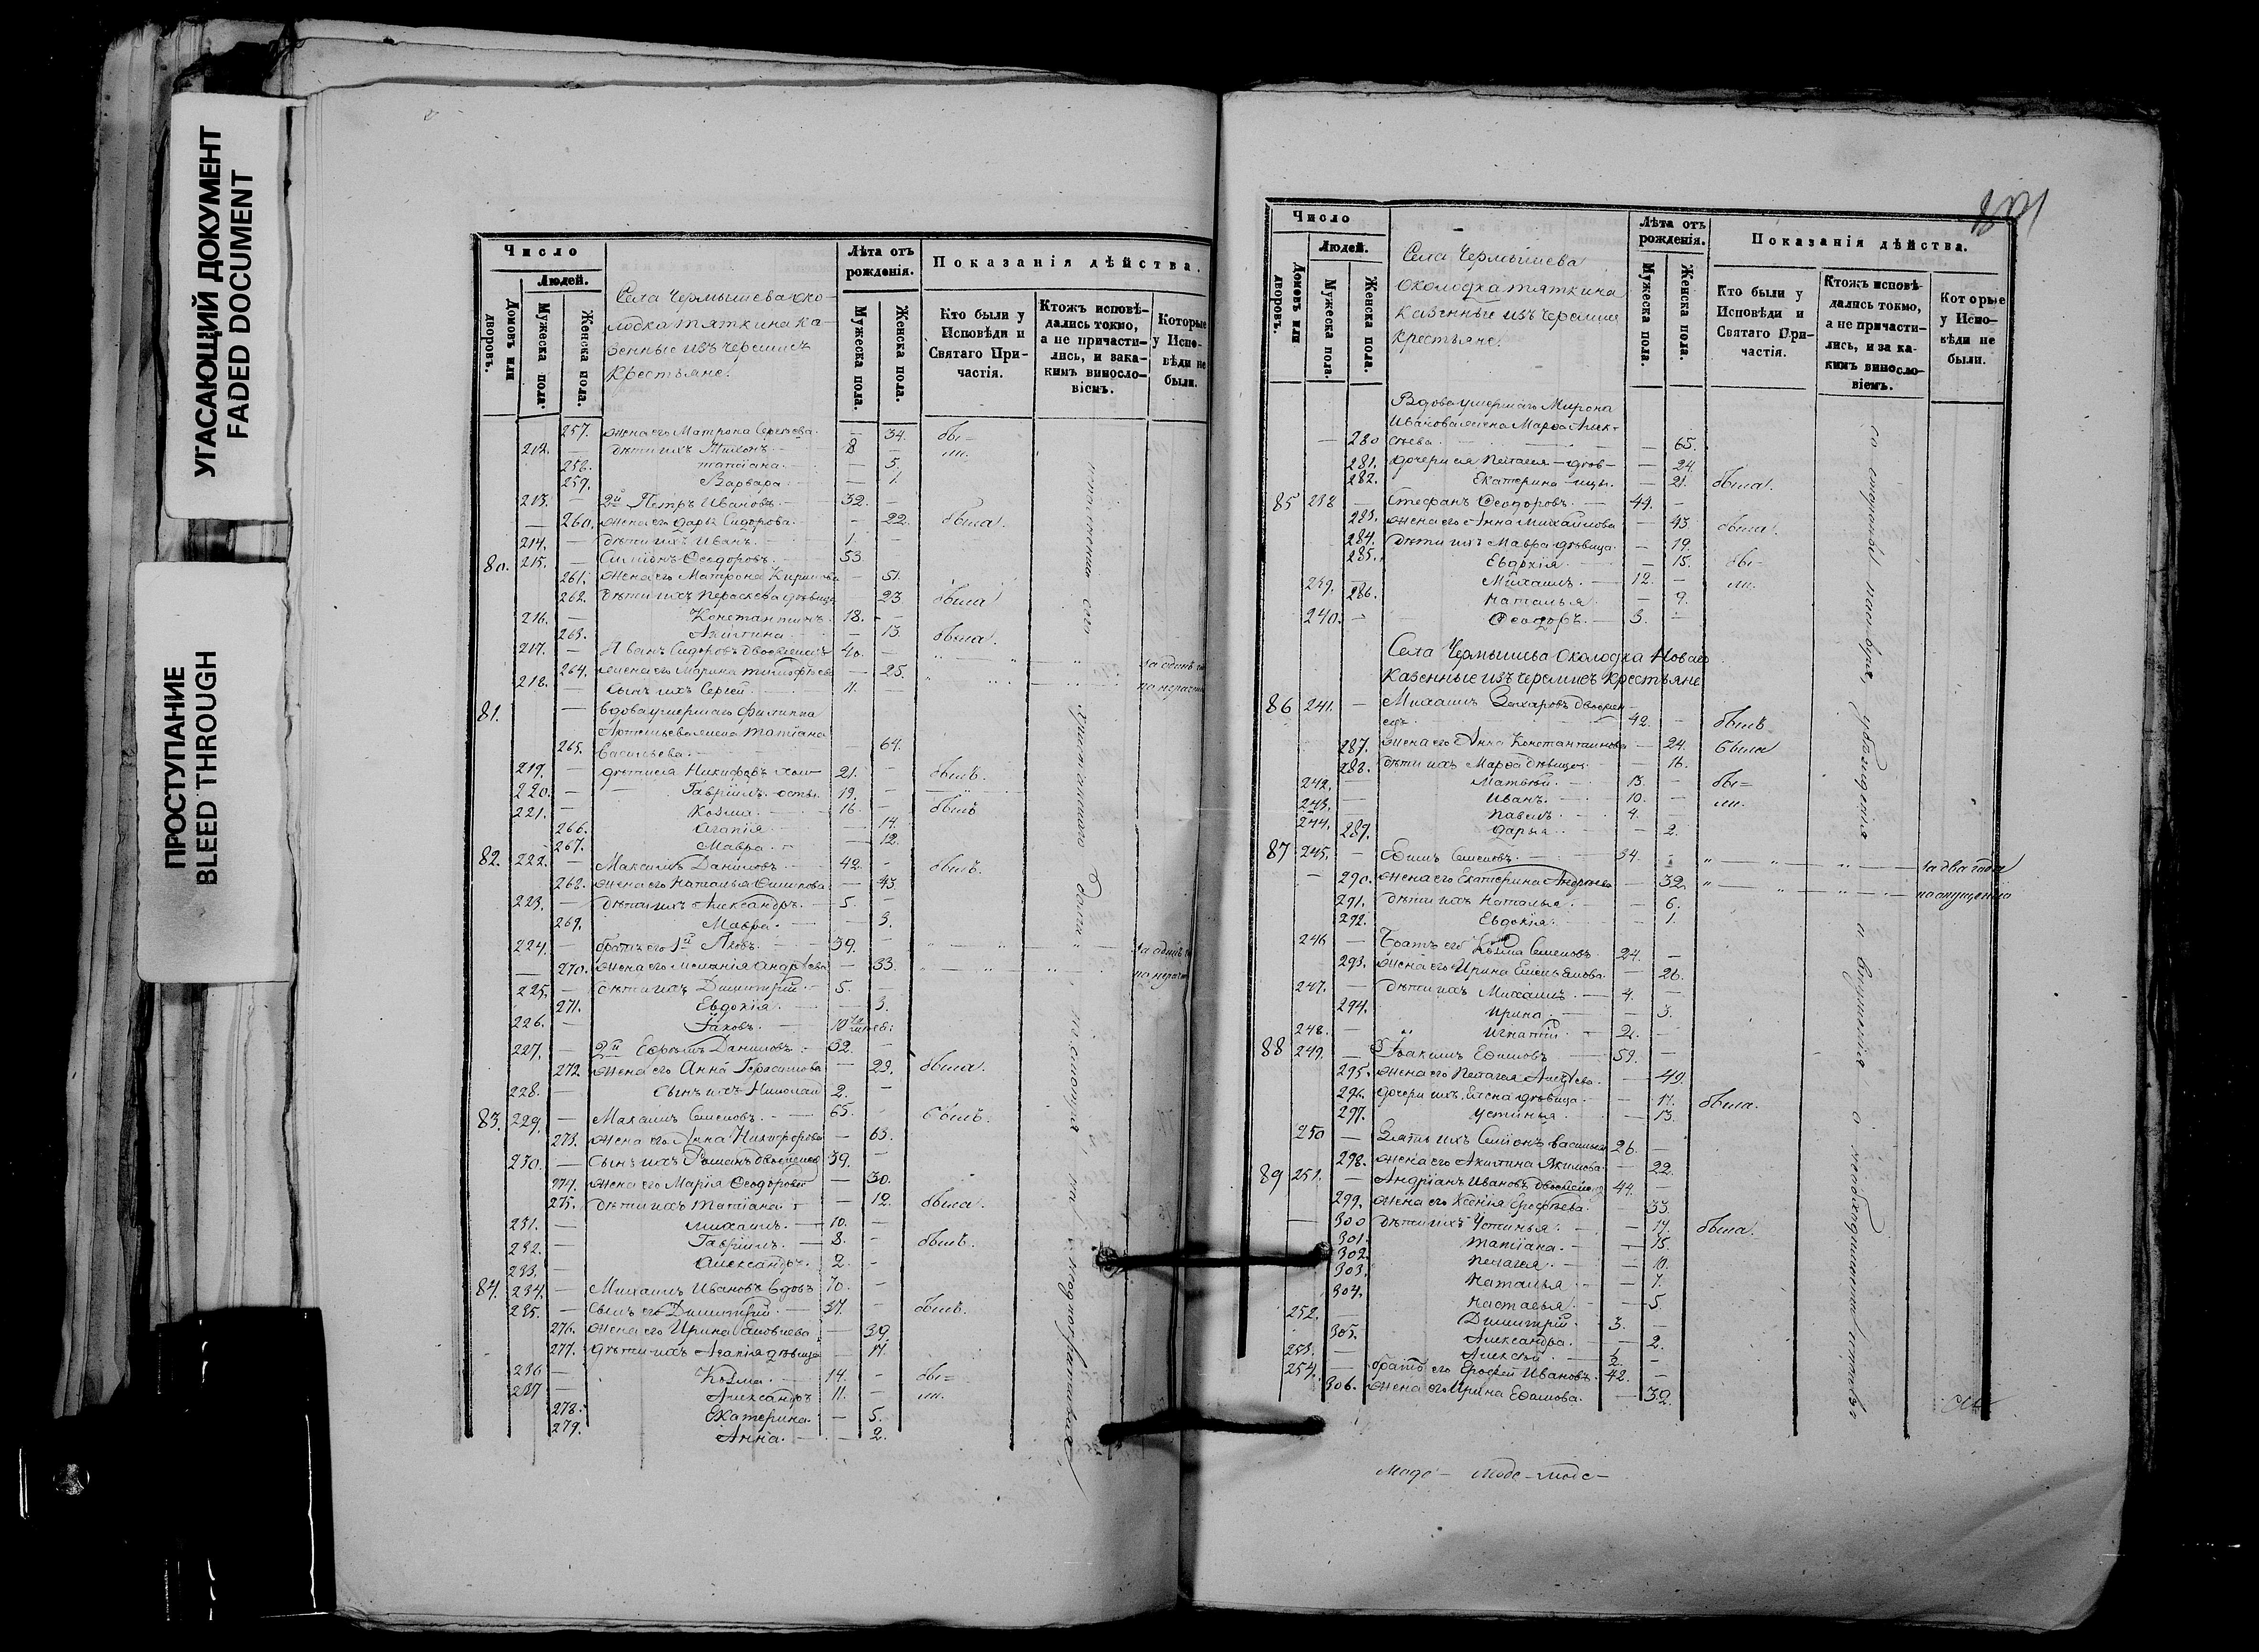 УГАСАЮЩИЙ ДОКУМЕНТ
FADED DOCUMENT
ПРОСТУПАНИЕ
BLEED THROUGH
Число
Людей.
Домовъ или дворовъ.
Мужеска пола.
Женска пола.
Села Чермышева око-
лодка Тяткина ка-
зенные изъ черемисъ
крестьяне.
Лѣта отъ рожденія.
Мужеска пола.
Женска пола.
Показанія дѣйства.
Кто были у Исповѣди и Святаго При-частія.
Ктожъ исповѣ-дались токмо, а не причасти-лись, и зака-кимъ виносло-віемъ.
Которые у Испо-вѣди не были.
257. жена его Матрона Сергѣева. — 34. бы=
212. — дѣти ихъ 8 — ли.
258. Татіана. — 5.
259. Варвара. — 1.
213. — 2й Петръ Ивановъ. 32.
— 260. жена его Дарья Сидорова. — 22. была.
214. — дѣти ихъ Иванъ. 1. —
80. 215. — Симіонъ Ѳеодоровъ. 53
261. жена его Матрона Кирилова — 51.
262. дѣти ихъ Пераскева дѣвица 23. была
216. — Константинъ. 18. —
263. Акилина — 13. была.
217. — Иванъ Сидоровъ двоеженецъ 40. —
264. жена его Марина Тимофѣева — 25. за одинъ
218. — сынъ ихъ Сергей 11. —
81. — вдова умершаго Филиппа
Артемьева жена Татіана
265. Васильева. — 64.
219. — дѣти ея Никифоръ холо- 21. — былъ.
220. — Гавріилъ. -сты. 19. —
221. — Козма. 16 — былъ
266. Агапія — 14.
267. Мавра. — 12.
82. 222. — Максимъ Даниловъ. 42. — былъ.
268. жена его Наталья — 43.
223. — дѣти ихъ Александръ. 5. —
269. Мавра. — 3.
224. — братъ его 1й Яковъ. 39. — за одинъ
— 270. жена его Меланія Андреева — 33.
225. — дѣти ихъ Димитрій 5. —
271. Евдокія — 3.
226. — Іаковъ.
227. — 2й Ефремъ Даниловъ. 32. —
272 жена его Анна Герасимова — 29. была.
228. — сынъ ихъ Николай 2. —
83. 229. — Семеновъ. 65. былъ.
273. жена его Анна Никифорова — 63.
230. — сынъ ихъ Романъ двоеженец 39. —
274. жена его Марія Ѳеодорова — 30.
275. дѣти ихъ Татіана — 12. была.
231. — Михаилъ. 10. —
232. — Гавріилъ. 8. — былъ.
233. — Александръ. 2. —
84. 234. — Михаилъ Ивановъ вдовъ 70. —
235. — сынъ его Димитрій. 37. — былъ.
276. жена его Ирина Яковлева — 39.
277. дѣти ихъ Агапія дѣвица — 17.
236 — Козма. 14. — бы=
237 — Александръ 11. — ли.
278. Екатерина. — 5.
279. Анна. — 2.
Число
Людей.
Домовъ или дворовъ.
Мужеска пола.
Женска пола.
Села Чермышева
околодка Тяткина
казенные изъ черемисъ
крестьяне.
Лѣта отъ рожденія.
Мужеска пола.
Женска пола.
Показанія дѣйства.
Кто были у Исповѣди и Святаго При-частія.
Ктожъ исповѣ-дались токмо, а не причасти-лись, и за ка-кимъ виносло-віемъ.
Которые у Испо-вѣди не были.
Вдова умершаго Мирона
Иванова жена Марѳа Алек-
— 280 сѣева. — 65.
281. дочери ея Пелагея — дѣв- — 24.
282. Екатерина -ицы. — 21. была.
85 238 — Стефанъ Ѳеодоровъ. 44. —
283. жена его Анна Михайлова — 43. была.
284. дѣти ихъ Мавра дѣвица. — 19.
285. Евдокія — 15. бы-
239. — Михаилъ. 12. — ли.
286. Наталья — 9.
240. — Ѳеодоръ. 3. —
Села Чермышева околодка Новаго
казенные изъ черемисъ крестьяне
86 241. — Михаилъ Захаровъ двоежен-
ецъ. 42. — былъ
287. жена его Анна Константинова — 24. была
288. дѣти ихъ Марѳа дѣвица — 16.
242. — Матвѣй. 13. — бы=
243. — Иванъ. 10. — ли.
244. — Павелъ. 4. —
289. Дарья. — 2.
87 245. — Семеновъ. 34. — за два года
— 290. жена его Екатерина Андреева — 32. по опущенію
291. дѣти ихъ Наталья. — 6.
292. Евдокія. — 1.
246 — Братъ его Козма Семеновъ. 24. —
293. жена его Ирина Емельянова. — 26.
247. — дѣти ихъ Михаилъ. 4. —
294. Ирина. — 3.
248. — Игнатій. 2. —
88 249. — Іоакимъ Ефимовъ 59. —
295. жена его Пелагея — 49.
296. дочери ихъ Елена дѣвица. — 17. была.
297. Устинья. — 13.
250 — Зять ихъ Симіонъ Васильевъ 26. —
298. жена его Акилина Якимова. — 22.
89 251. — Андріанъ Ивановъ двоеженецъ 44. —
299. жена его Ксенія Ерофѣева. — 33.
— 300 дѣти ихъ Устинья. — 17. была.
301. Татіана. — 15.
302. Пелагея. — 10.
303. Наталья — 7.
304. Настасья. — 5.
252. — Димитрій. 3. —
305. Александра. — 2.
253. — Алексѣй. —
254. — братъ его Ерофей Ивановъ. 42. —
306. жена его Ирина Ефимова. — 32.